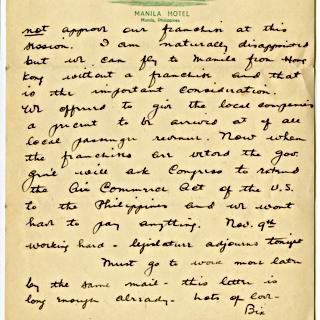 MANILA HOTEL
Manila, Philippines
not approve our franchise at this
session. I am naturally disappointed
but we can fly to Manila from Hong
Kong without a franchise and that
is the important consideration.
We offered to give the local companies
a percent to be arrived at of all
local passenger revenue. Now when
the franchises are vetoed the gov.
gen'l will ask Congress to extend
the Air Commerce Act of the U.S.
to the Philippines and we wont
have to pay anything. Nov. 9th
working hard - legislature adjourns tonight
Must go to work more later
by the same mail - this letter is
long enough already. Lots of love -
Bix